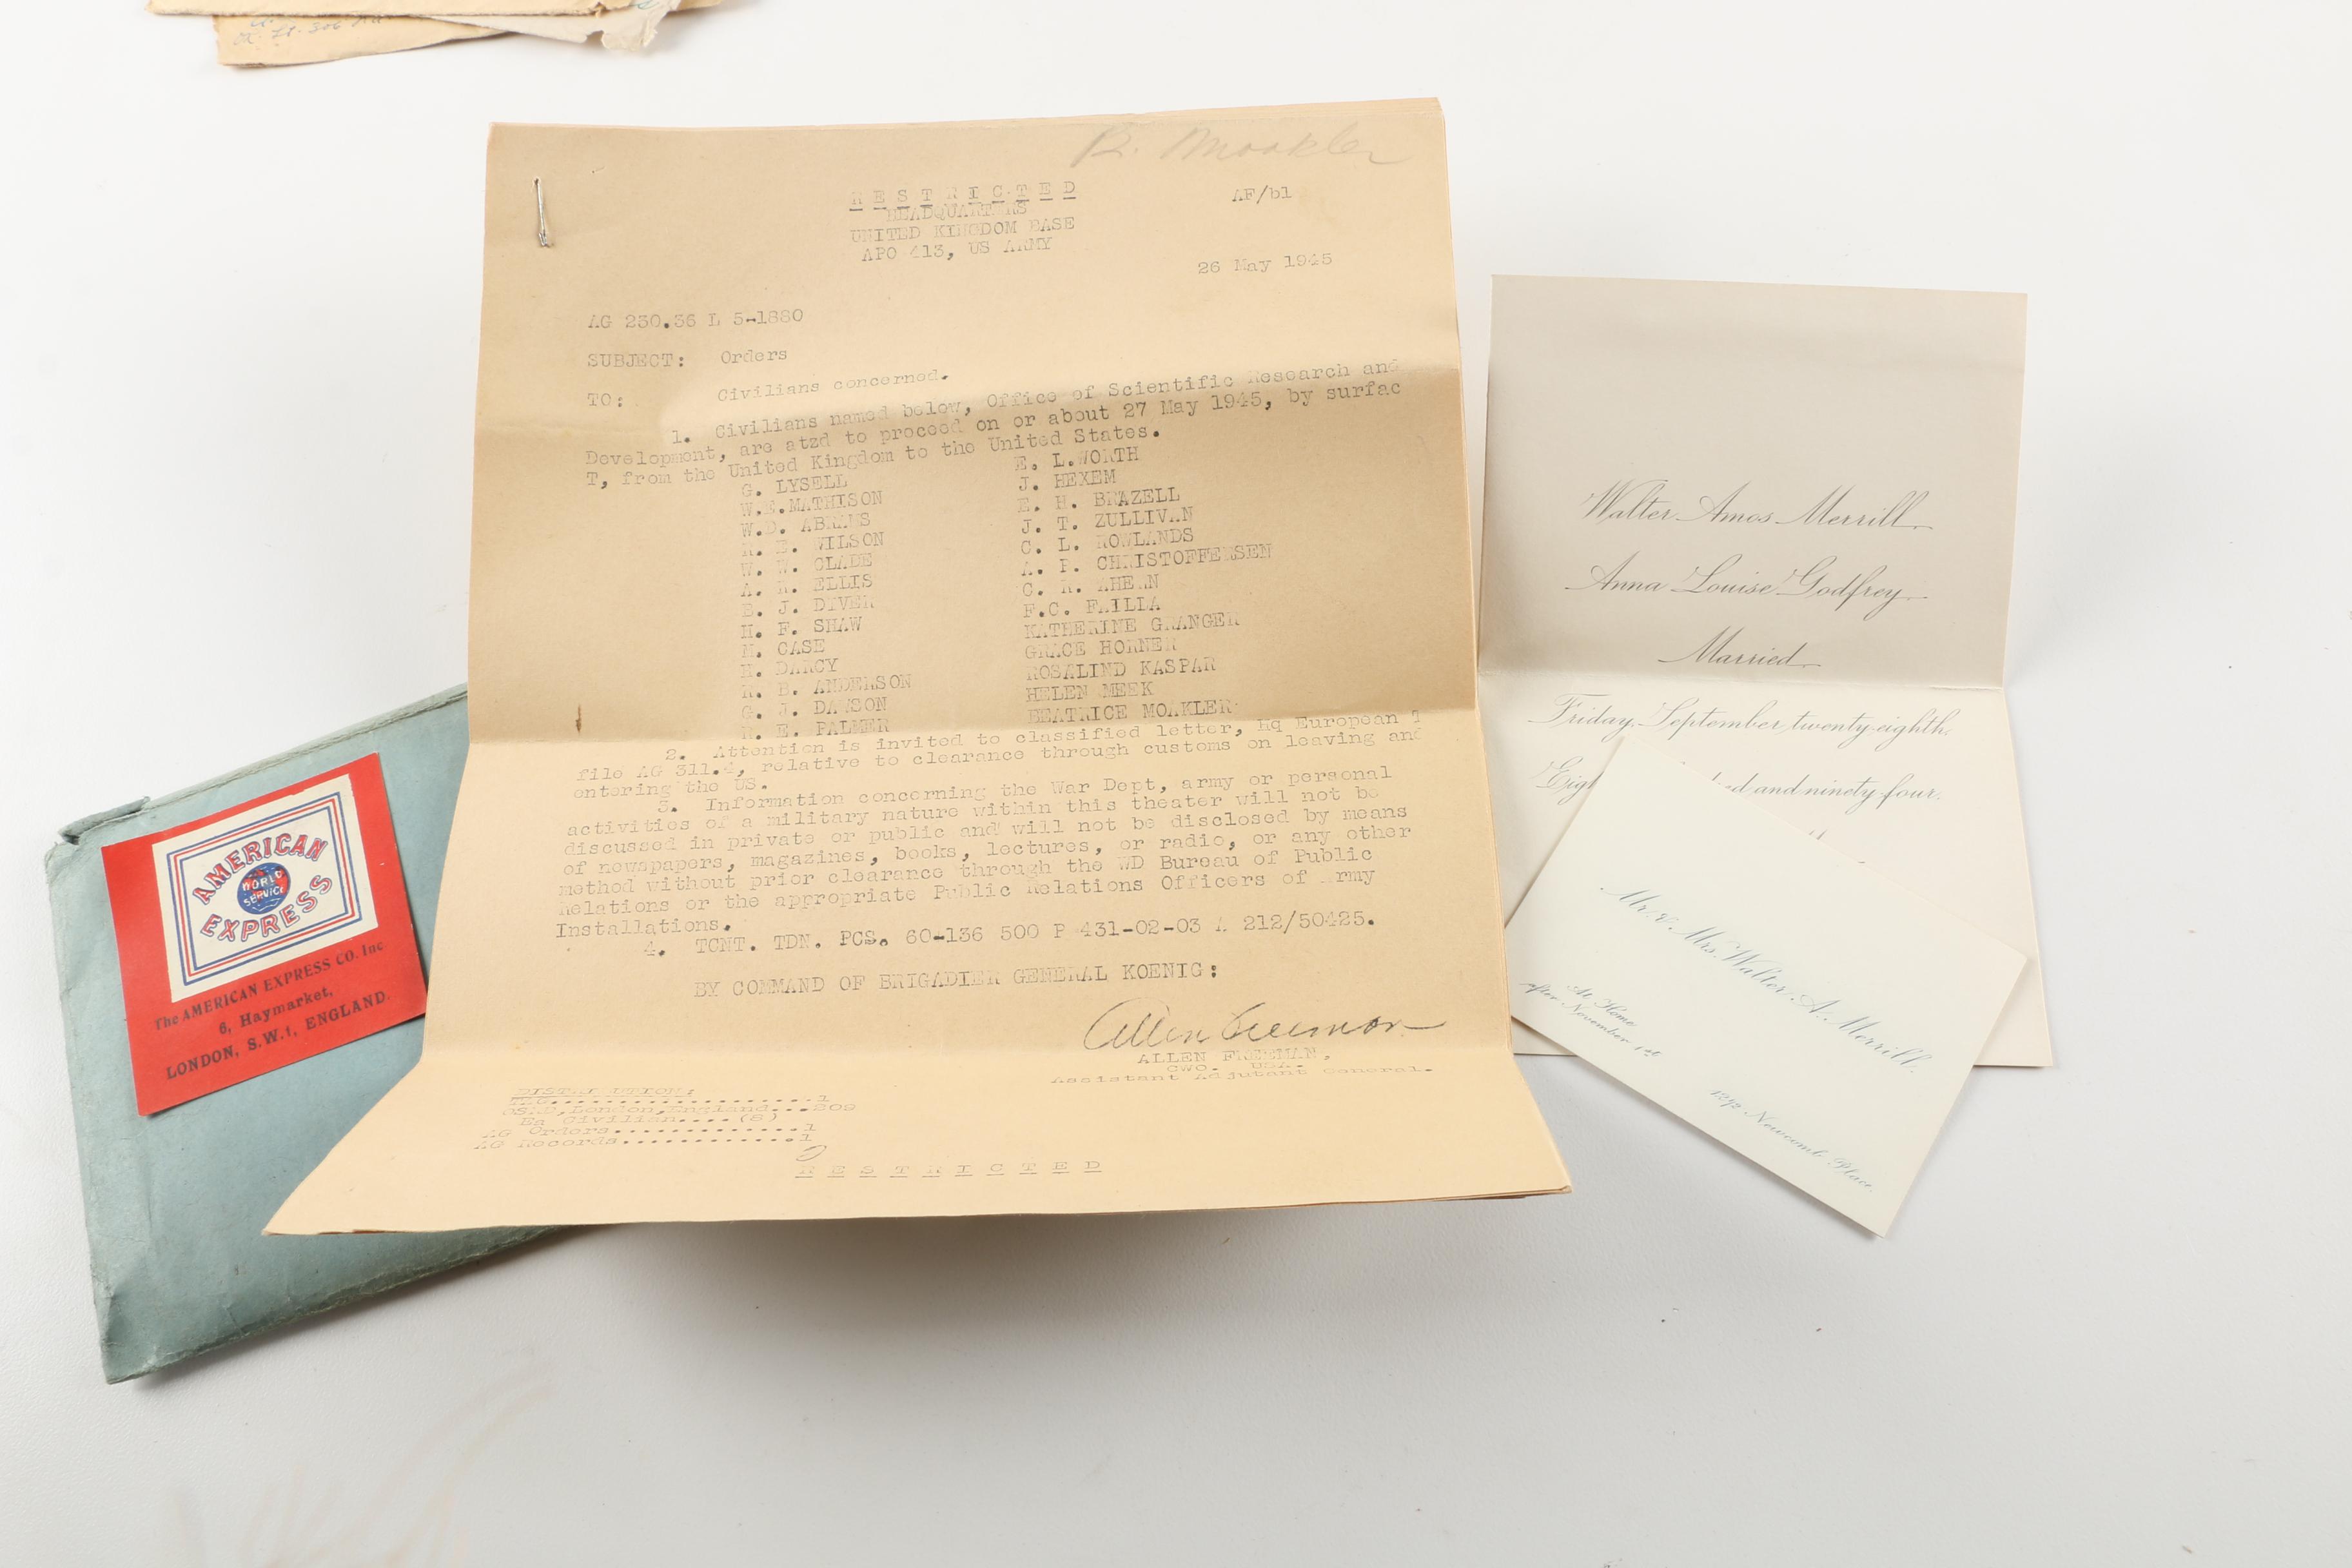 B. Moakler
RESTRICTED
AF/bl
HEADQUARTERS
UNITED KINGDOM BASE
APO 413, US ARMY
26 May 1945
AG 230.36 L 5-1880
SUBJECT: Orders
TO: Civilians concerned.
1. Civilians named below, Office of Scientific Research and
Development, are atzd to proceed on or about 27 May 1945, by surfac
T, from the United Kingdom to the United States.
G. LYSELL
W.E.MATHISON
W.D. ABRAMS
R. E. WILSON
W. W. SLADE
A. R. ELLIS
B. J. DIVER
H. F. SHAW
M. CASE
H. DARCY
R. B. ANDERSON
G. J. DAWSON
R. E. PALMER
E. L.WORTH
J. HEXEM
E. H. BRAZELL
J. T. ZULLIVAN
C. L. ROWLANDS
A. P. CHRISTOFFERSEN
C. R. AHERN
F.C. FRILLA
KATHERINE GRANGER
GRACE HORNER
ROSALIND KASPAR
HELEN MEEK
BEATRICE MOAKLER
2. Attention is invited to classified letter, Hq European T
file AG 311.4, relative to clearance through customs on leaving and
entering the US.
3. Information concerning the War Dept, army or personal
activities of a military nature within this theater will not be
discussed in private or public and will not be disclosed by means
of newspapers, magazines, books, lectures, or radio, or any other
method without prior clearance through the WD Bureau of Public
Relations or the appropriate Public Relations Officers of Army
Installations.
4. TCNT. TDN. PCS. 60-136 500 P 431-02-03 A 212/50425.
BY COMMAND OF BRIGADIER GENERAL KOENIG:
Allen Freeman
ALLEN FREEMAN,
CWO. USA.
Assistant Adjutant General.
DISTRIBUTION:
OSRD, London, England...209
Ea Civilian....(8)
AG Orders..............1
AG Records.............1
RESTRICTED
AMERICAN
WORLD
SERVICE
EXPRESS
The AMERICAN EXPRESS CO. Inc
6, Haymarket,
LONDON, S.W.1, ENGLAND.
Walter Amos Merrill
Anna Louise Godfrey
Married
Friday, September twenty-eighth,
and ninety-four.
Mr. & Mrs. Walter A. Merrill.
At Home
after November 1st
1292 Newcomb Place.